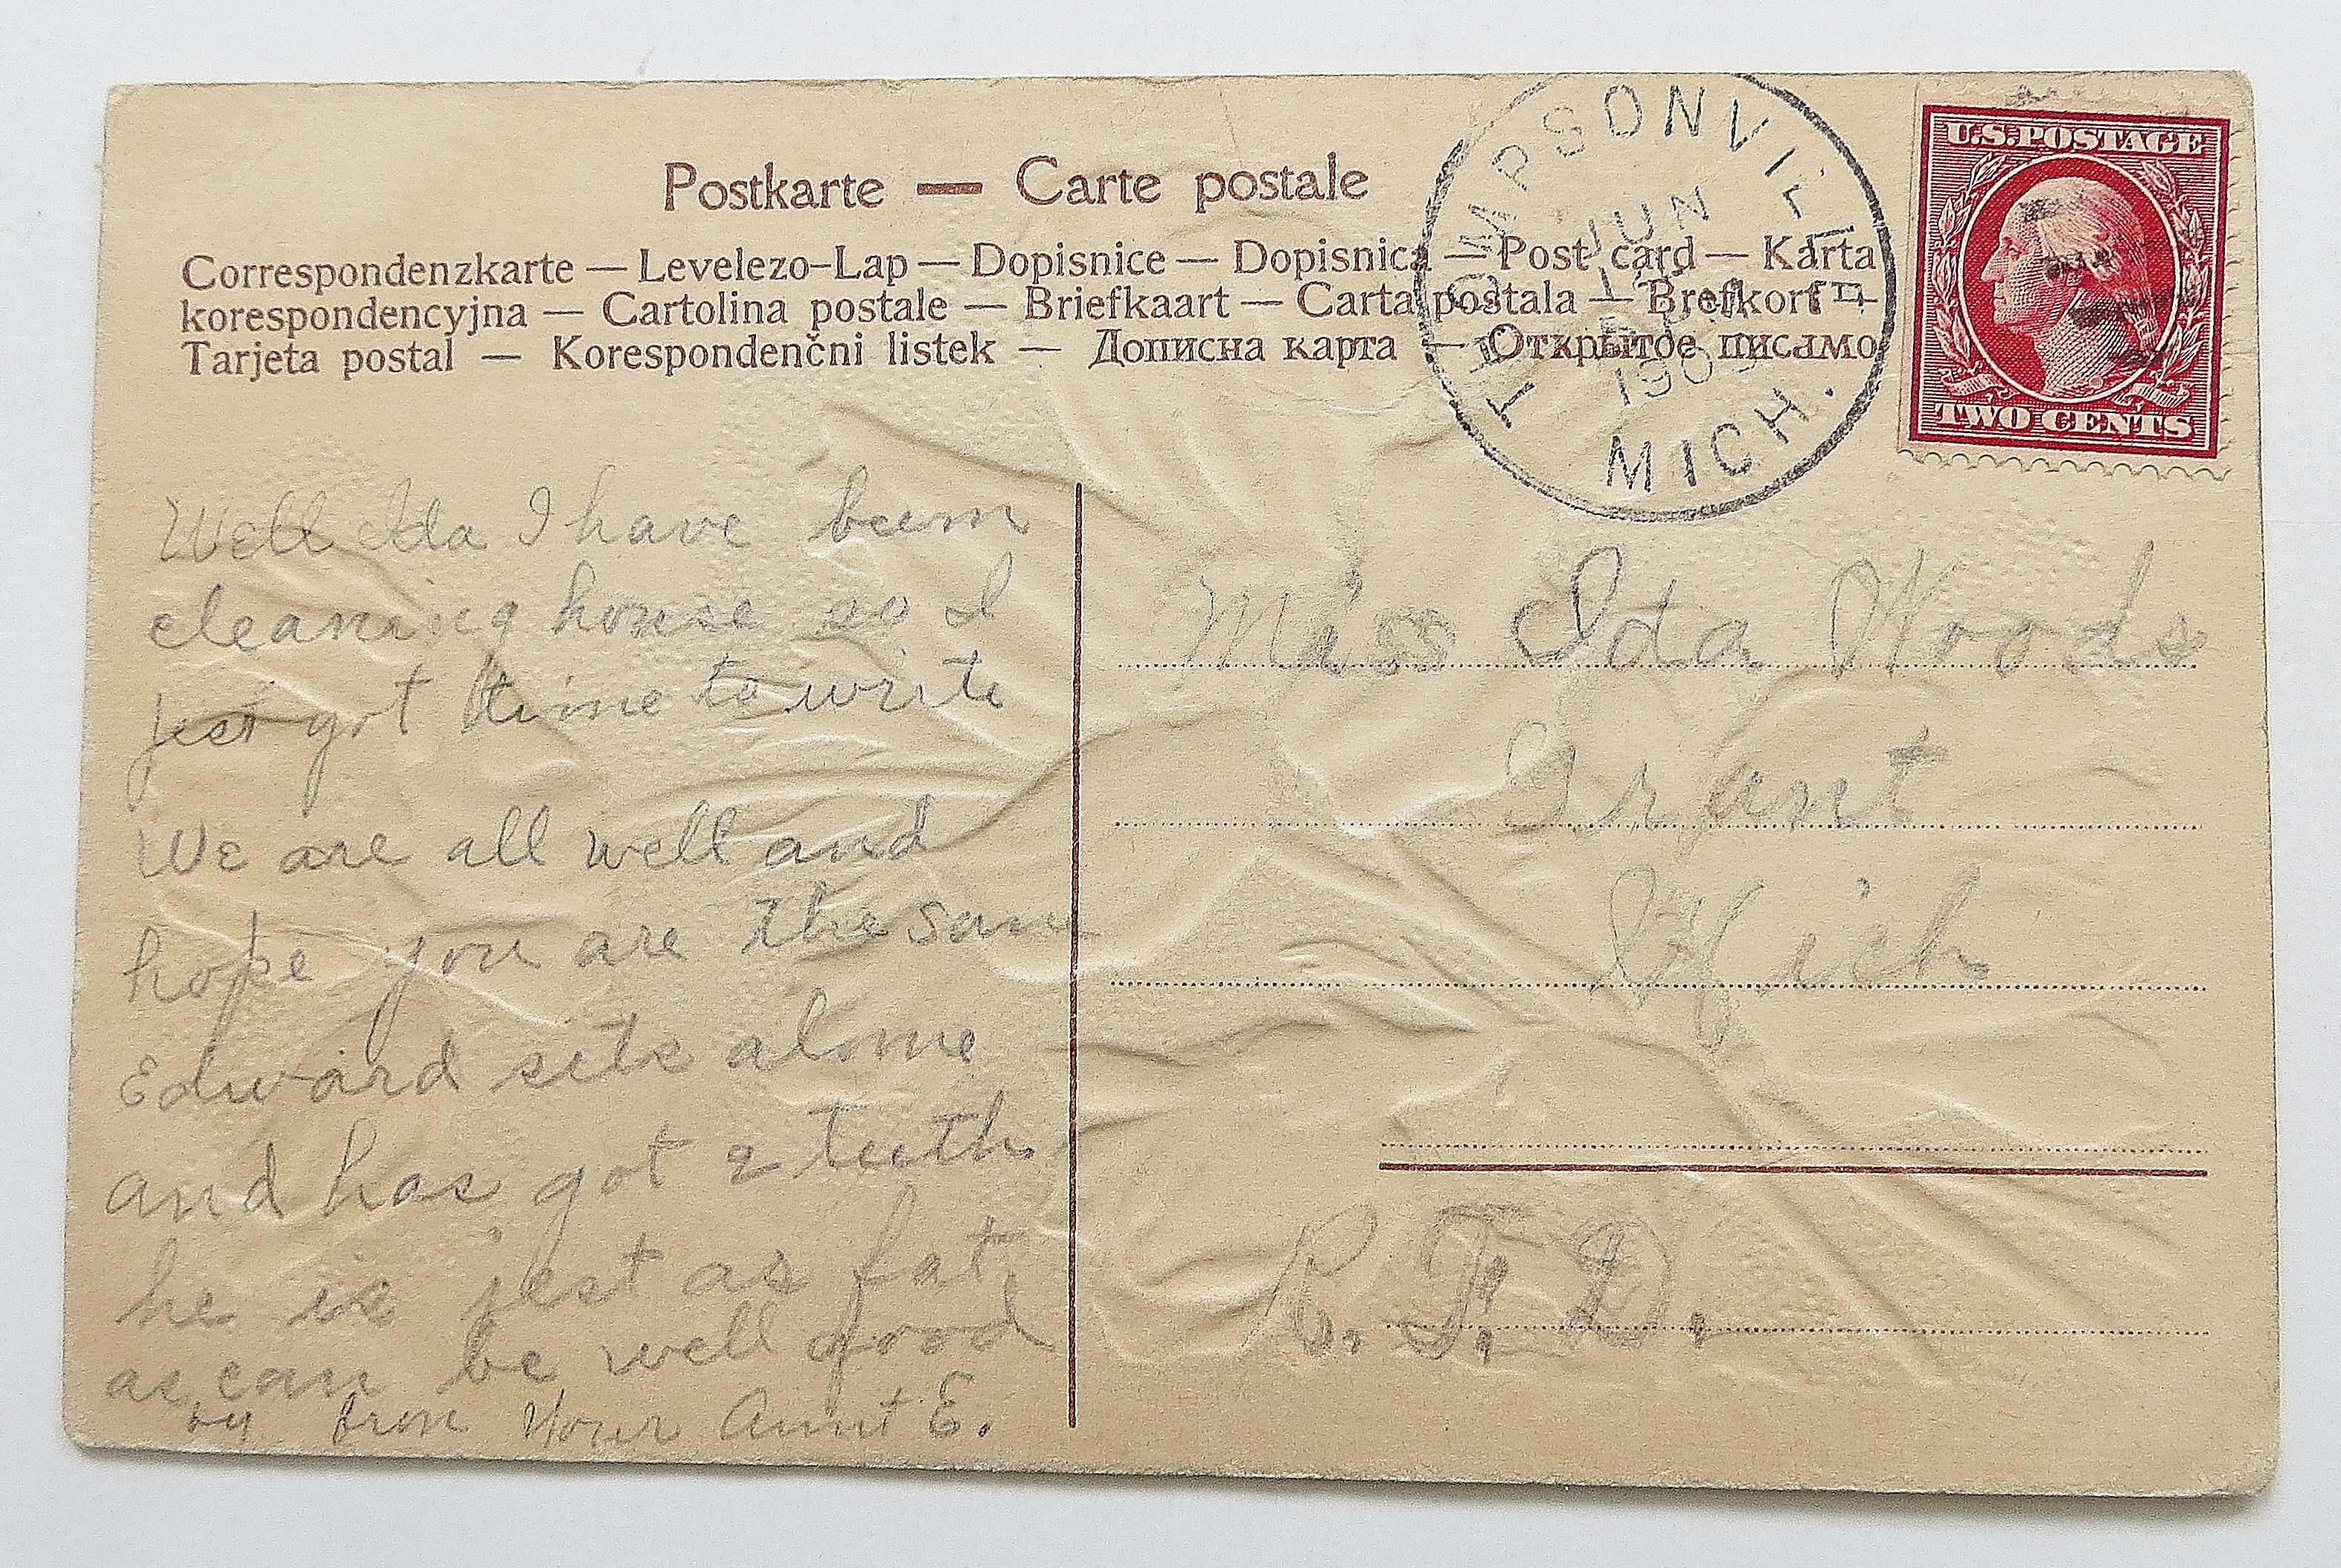 Postkarte — Carte postale
Correspondenzkarte — Levelezo-Lap — Dopisnice — Dopisnica — Post card — Karta
korespondencyjna — Cartolina postale — Briefkaart — Carta postala — Brefkort —
Tarjeta postal — Korespondenčni listek — Дописна карта — Открытое писамо
THOMPSONVILLE
JUN
1909
MICH.
U.S. POSTAGE
TWO CENTS
Well Ida I have been
cleaning house so I
jest got time to write
We are all well and
hope you are the same
Edward sits alone
and has got 2 teeth
he is jest as fat
as can be well good
by from Your Aunt E.
Miss Ida Woods
Grant
Mich
R. F. D.